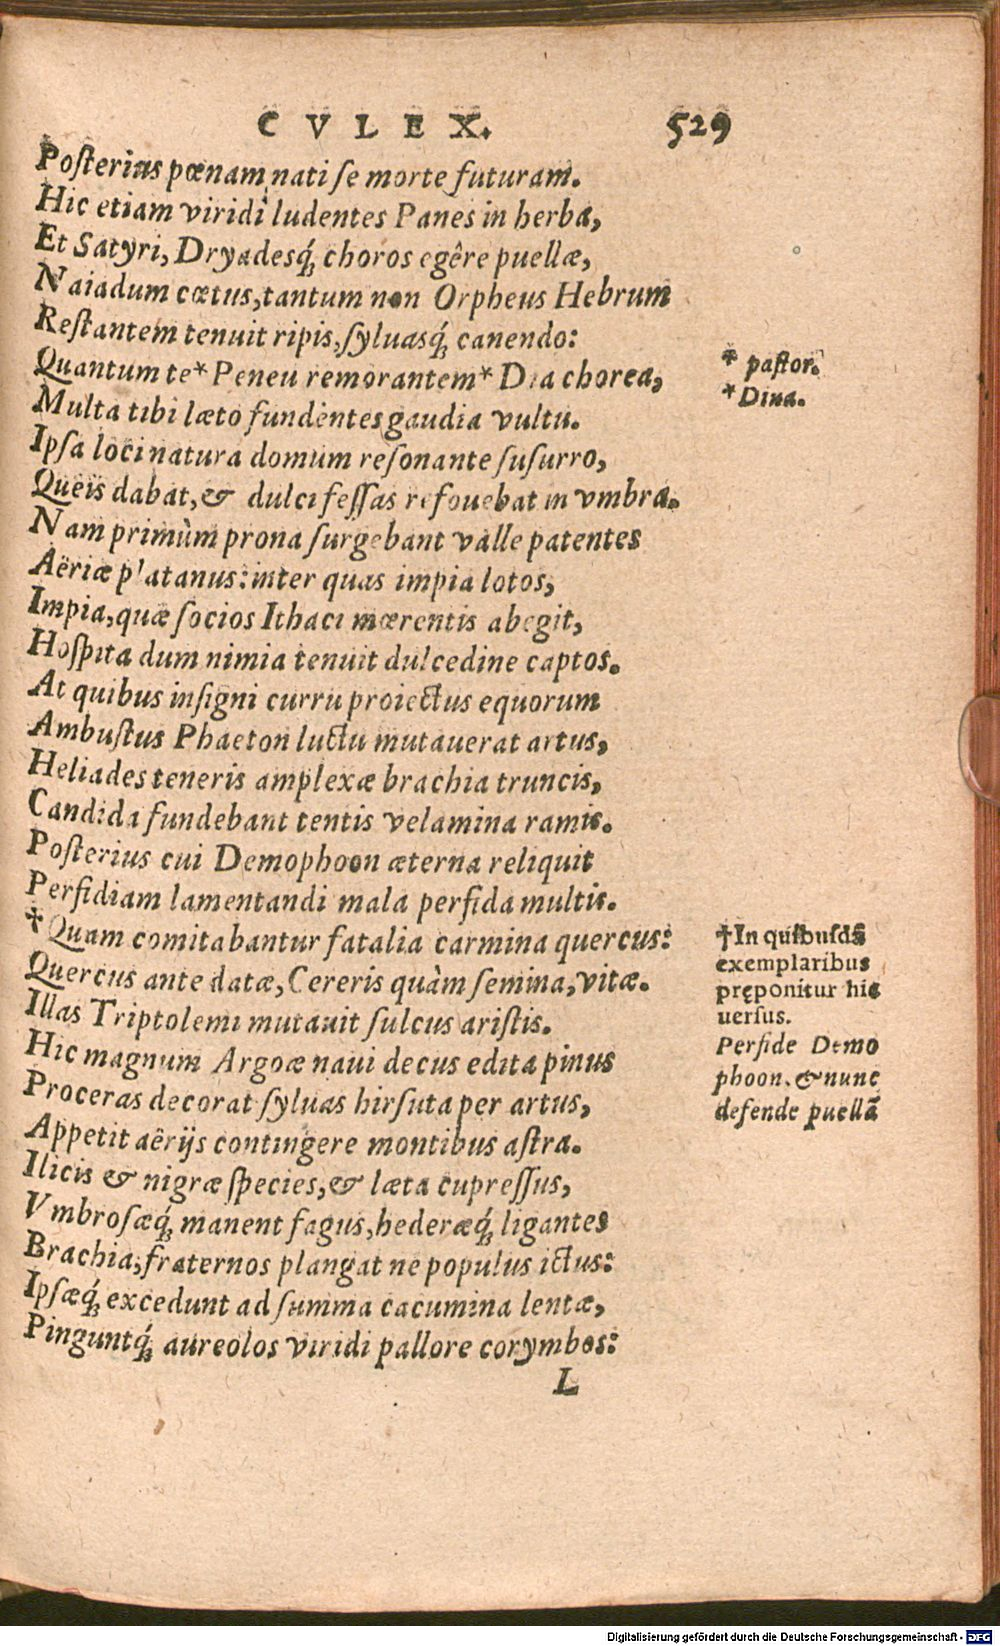 CVLEX. 529
Poſterius pœnam nati ſe morte futuram.
Hic etiam viridi ludentes Panes in herba,
Et Satyri, Dryadesq́; choros egêre puellæ,
Naiadum cœtus, tantum non Orpheus Hebrum
Reſtantem tenuit ripis, ſyluasq́; canendo:
Quantum te* Peneu remorantem* Dia chorea,
* paſtor.
* Diua.
Multa tibi læto fundentes gaudia vultu.
Ipſa loci natura domum reſonante ſuſurro,
Queis dabat, & dulci feſſas refouebat in vmbra.
Nam primùm prona ſurgebant valle patentes
Aëriæ platanus: inter quas impia lotos,
Impia, quæ ſocios Ithaci mœrentis abegit,
Hoſpita dum nimia tenuit dulcedine captos.
At quibus inſigni curru proiectus equorum
Ambuſtus Phaeton luctu mutauerat artus,
Heliades teneris amplexæ brachia truncis,
Candida fundebant tentis velamina ramis.
Poſterius cui Demophoon æterna reliquit
Perfidiam lamentandi mala perfida multis.
† Quam comitabantur fatalia carmina quercus:
Quercus ante datæ, Cereris quàm ſemina, vitæ.
Illas Triptolemi mutauit ſulcus ariſtis.
Hic magnum Argoæ naui decus edita pinus
Proceras decorat ſyluas hirſuta per artus,
Appetit aërijs contingere montibus aſtra.
Ilicis & nigræ ſpecies, & læta cupreſſus,
Vmbroſæq́; manent fagus, hederæq́; ligantes
Brachia, fraternos plangat ne populus ictus:
Ipſæq́; excedunt ad ſumma cacumina lentæ,
Pinguntq́; aureolos viridi pallore corymbos:
†In quibuſdã
exemplaribus
pręponitur hic
uerſus.
Perfide Demo
phoon. & nunc
defende puellã
L
Digitalisierung gefördert durch die Deutsche Forschungsgemeinschaft - DFG